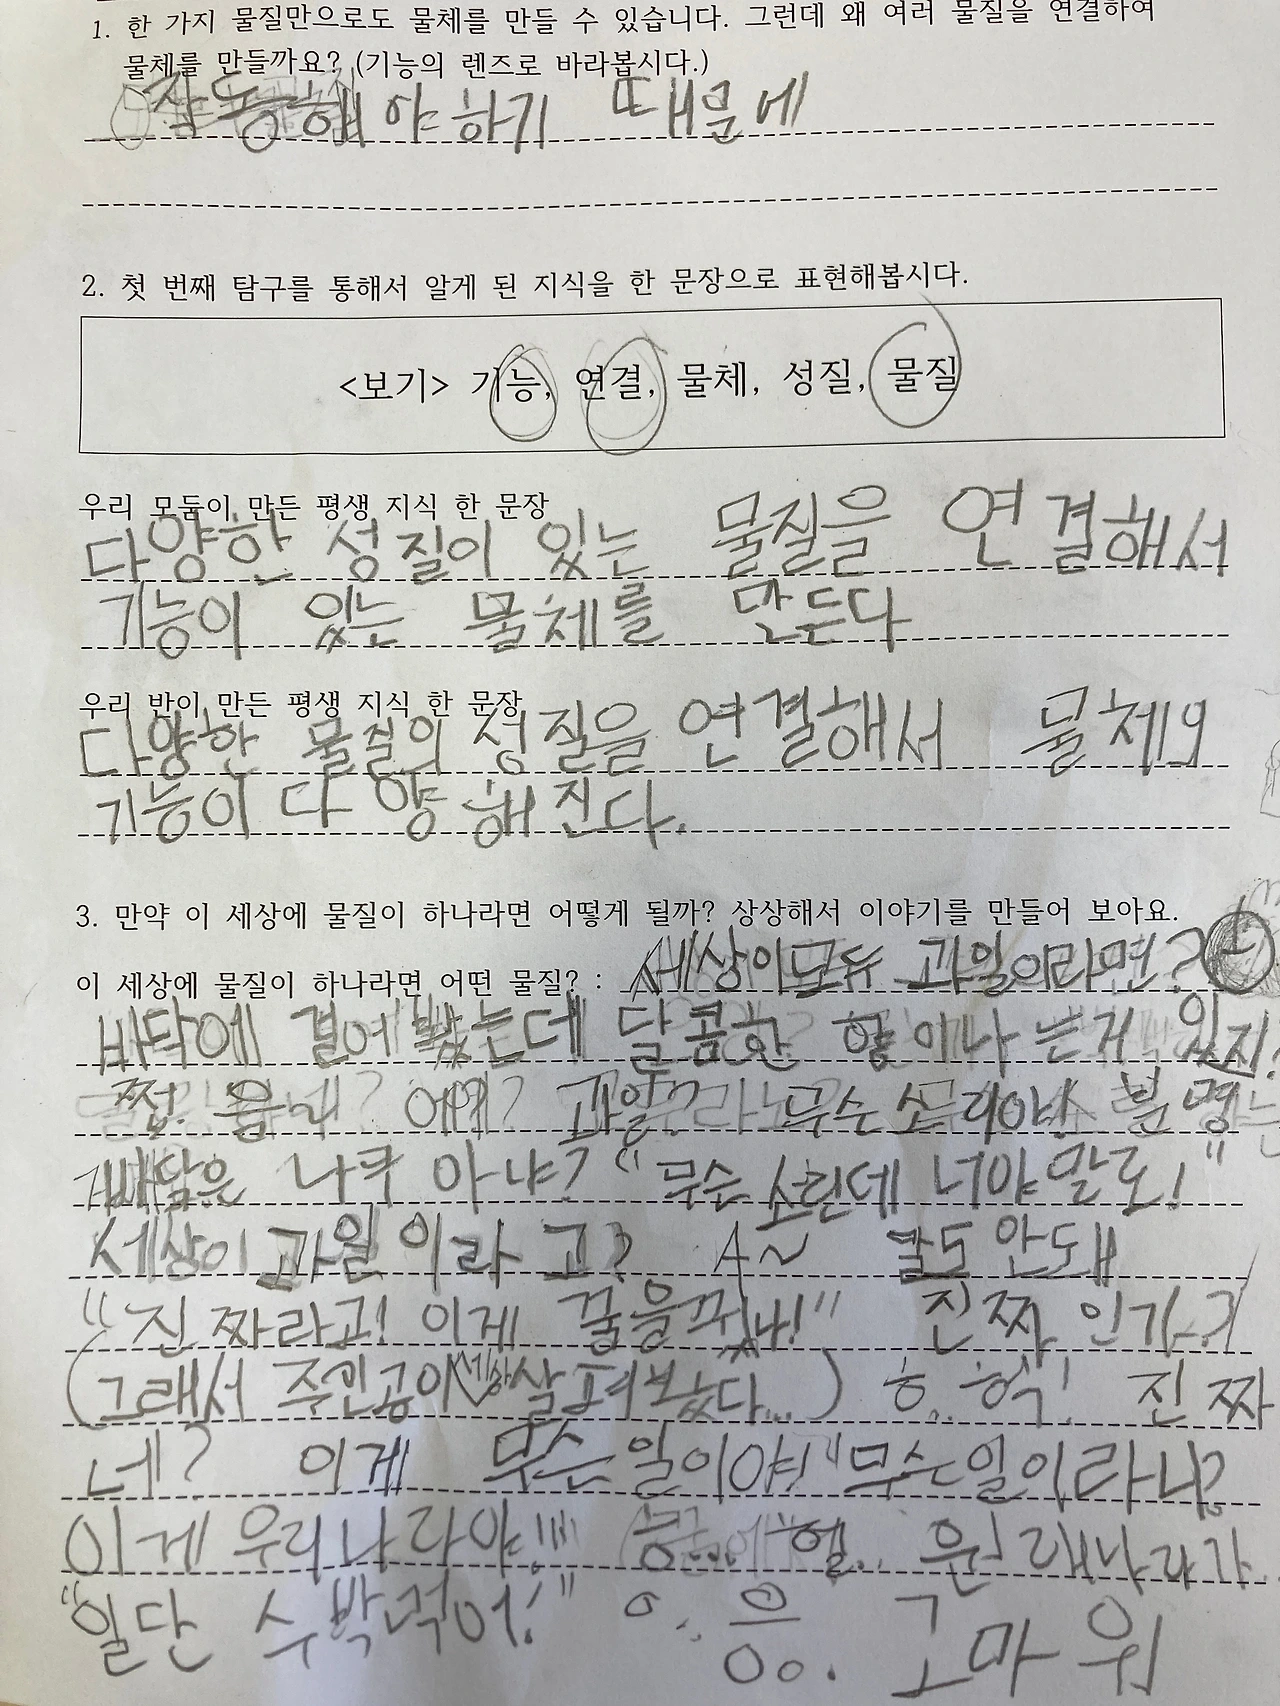 1. 한 가지 물질만으로도 물체를 만들 수 있습니다. 그런데 왜 여러 물질을 연결하여
물체를 만들까요? (기능의 렌즈로 바라봅시다.)
작동해야하기 때문에
2. 첫 번째 탐구를 통해서 알게 된 지식을 한 문장으로 표현해봅시다.
<보기> 기능, 연결, 물체, 성질, 물질
우리 모둠이 만든 평생 지식 한 문장
다양한 성질이 있는 물질을 연결해서
기능이 있는 물체를 만든다
우리 반이 만든 평생 지식 한 문장
다양한 물질의 성질을 연결해서 물체의
기능이 다양해진다.
3. 만약 이 세상에 물질이 하나라면 어떻게 될까? 상상해서 이야기를 만들어 보아요.
이 세상에 물질이 하나라면 어떤 물질? : 세상이모두 과일이라면?
바닥에 달콤한 향이나 는거 있지?
쩝. 과일? 무슨 소리야! 분명
나무 아냐? "무슨 소린데 너야말로!"
세상이 과일이라고? 말도안돼
"진짜라고! 이게 꿈을꿨나!" 진짜인가?
(그래서 주인공이 세상 살펴봤다...) ㅎ.. 헉! 진짜
네? 이게 무슨일이야! "무슨일이라니?
이게 우리나라야!!" 헐.. 원래나라가
"일단 수박먹어!" ㅇ.. 응. 고마워